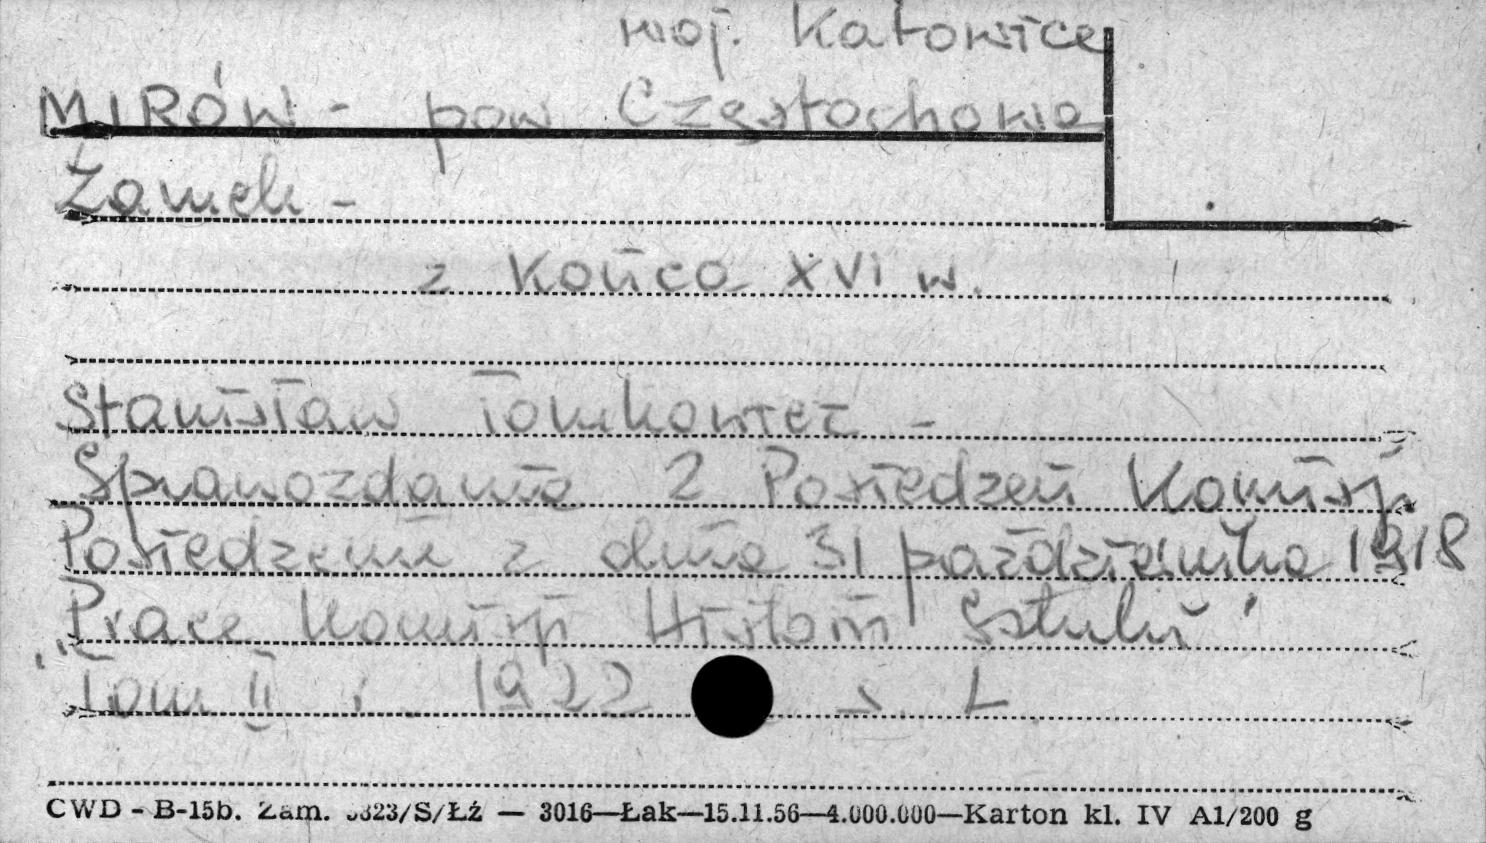 woj. Katowice
MIRÓW - pow Częstochowa
Zamek -
z końca XVI w.
Stanisław Tomkowicz -
Sprawozdania z Posiedzeń Komisji
Posiedzenie z dnia 31 października 1918
"Prace Komisji Historii Sztuki"
Tom II 1922 s. L
CWD - B-15b. Zam. 3823/S/Łź — 3016—Łak—15.11.56—4.000.000—Karton kl. IV A1/200 g